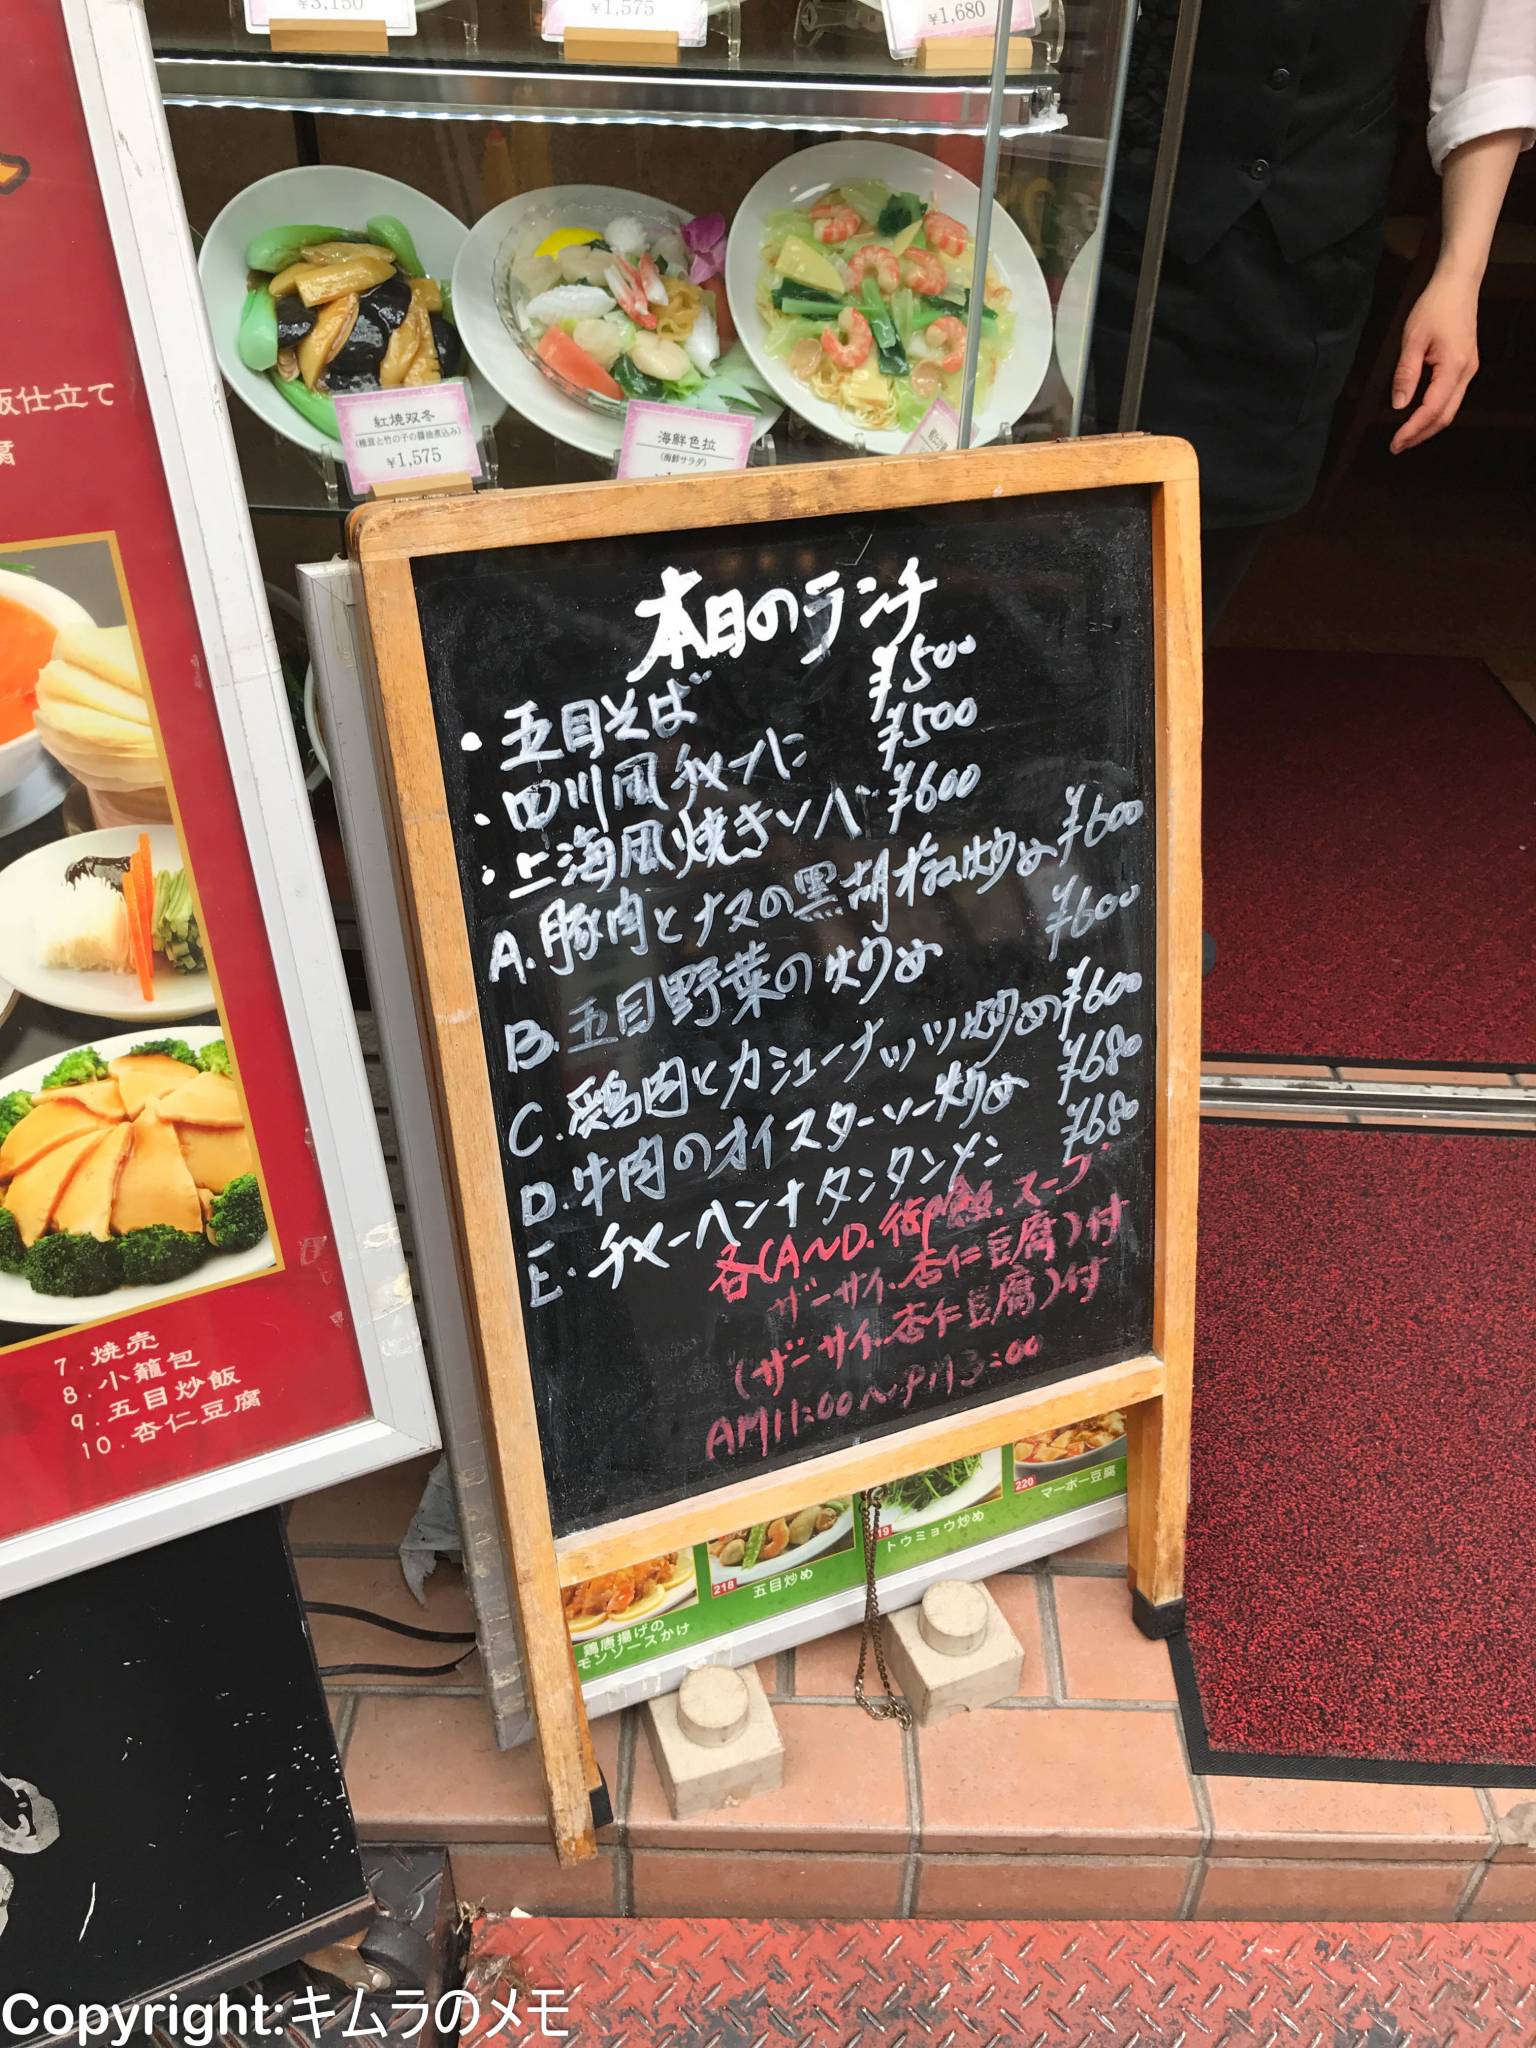 ¥3,150
¥1,575
¥1,680
紅焼双冬
(椎茸と竹の子の醤油煮込み)
¥1,575
海鮮色拉
(海鮮サラダ)
仕立て
7.焼売
8.小籠包
9.五目炒飯
10.杏仁豆腐
本日のランチ
・五目そば ¥500
・四川風チャーハン ¥500
・上海風焼きソバ ¥600
A.豚肉とナスの黒胡椒炒め ¥600
B.五目野菜の炒め ¥600
C.鶏肉とカシューナッツ炒め ¥600
D.牛肉のオイスターソー炒め ¥680
E.チャーハンナタンタンメン ¥680
各(A〜D.御飯.スープ
ザーサイ.杏仁豆腐)付
(ザーサイ.杏仁豆腐)付
AM11:00〜PM3:00
鶏唐揚げの
モンソースかけ
218 五目炒め
19 トウミョウ炒め
220 マーボー豆腐
Copyright:キムラのメモ